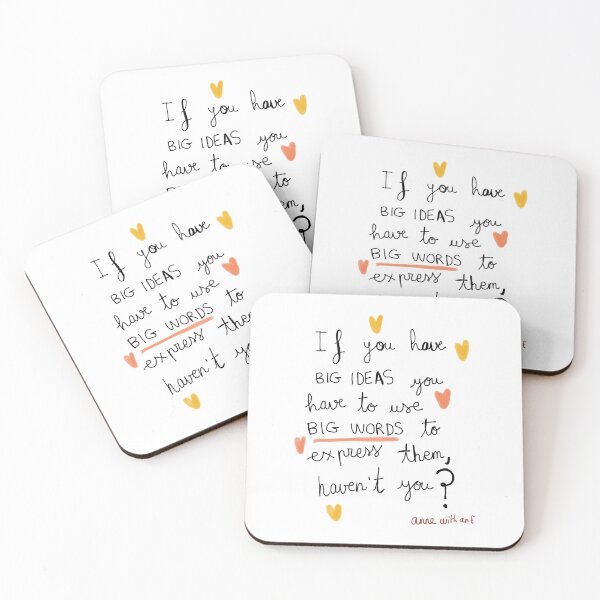 If you have
BIG IDEAS you
have to use
to
them,
?
If you have
BIG IDEAS you
have to use
BIG WORDS to
express them,
If you have
BIG IDEAS you
have to use
BIG WORDS to
express them
haven't you
If you have
BIG IDEAS you
have to use
BIG WORDS to
express them,
haven't you?
anne with an E